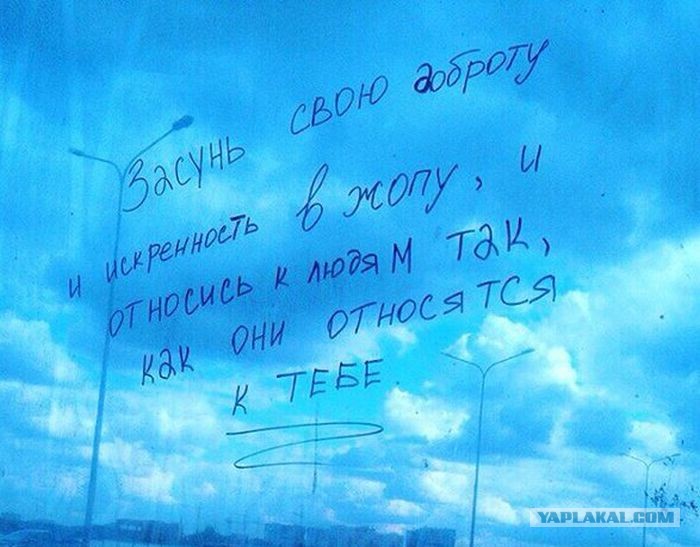 Засунь свою доброту
и искренность в жопу, и
относись к людям так,
как они относятся
к ТЕБЕ.
YAPLAKAL.COM